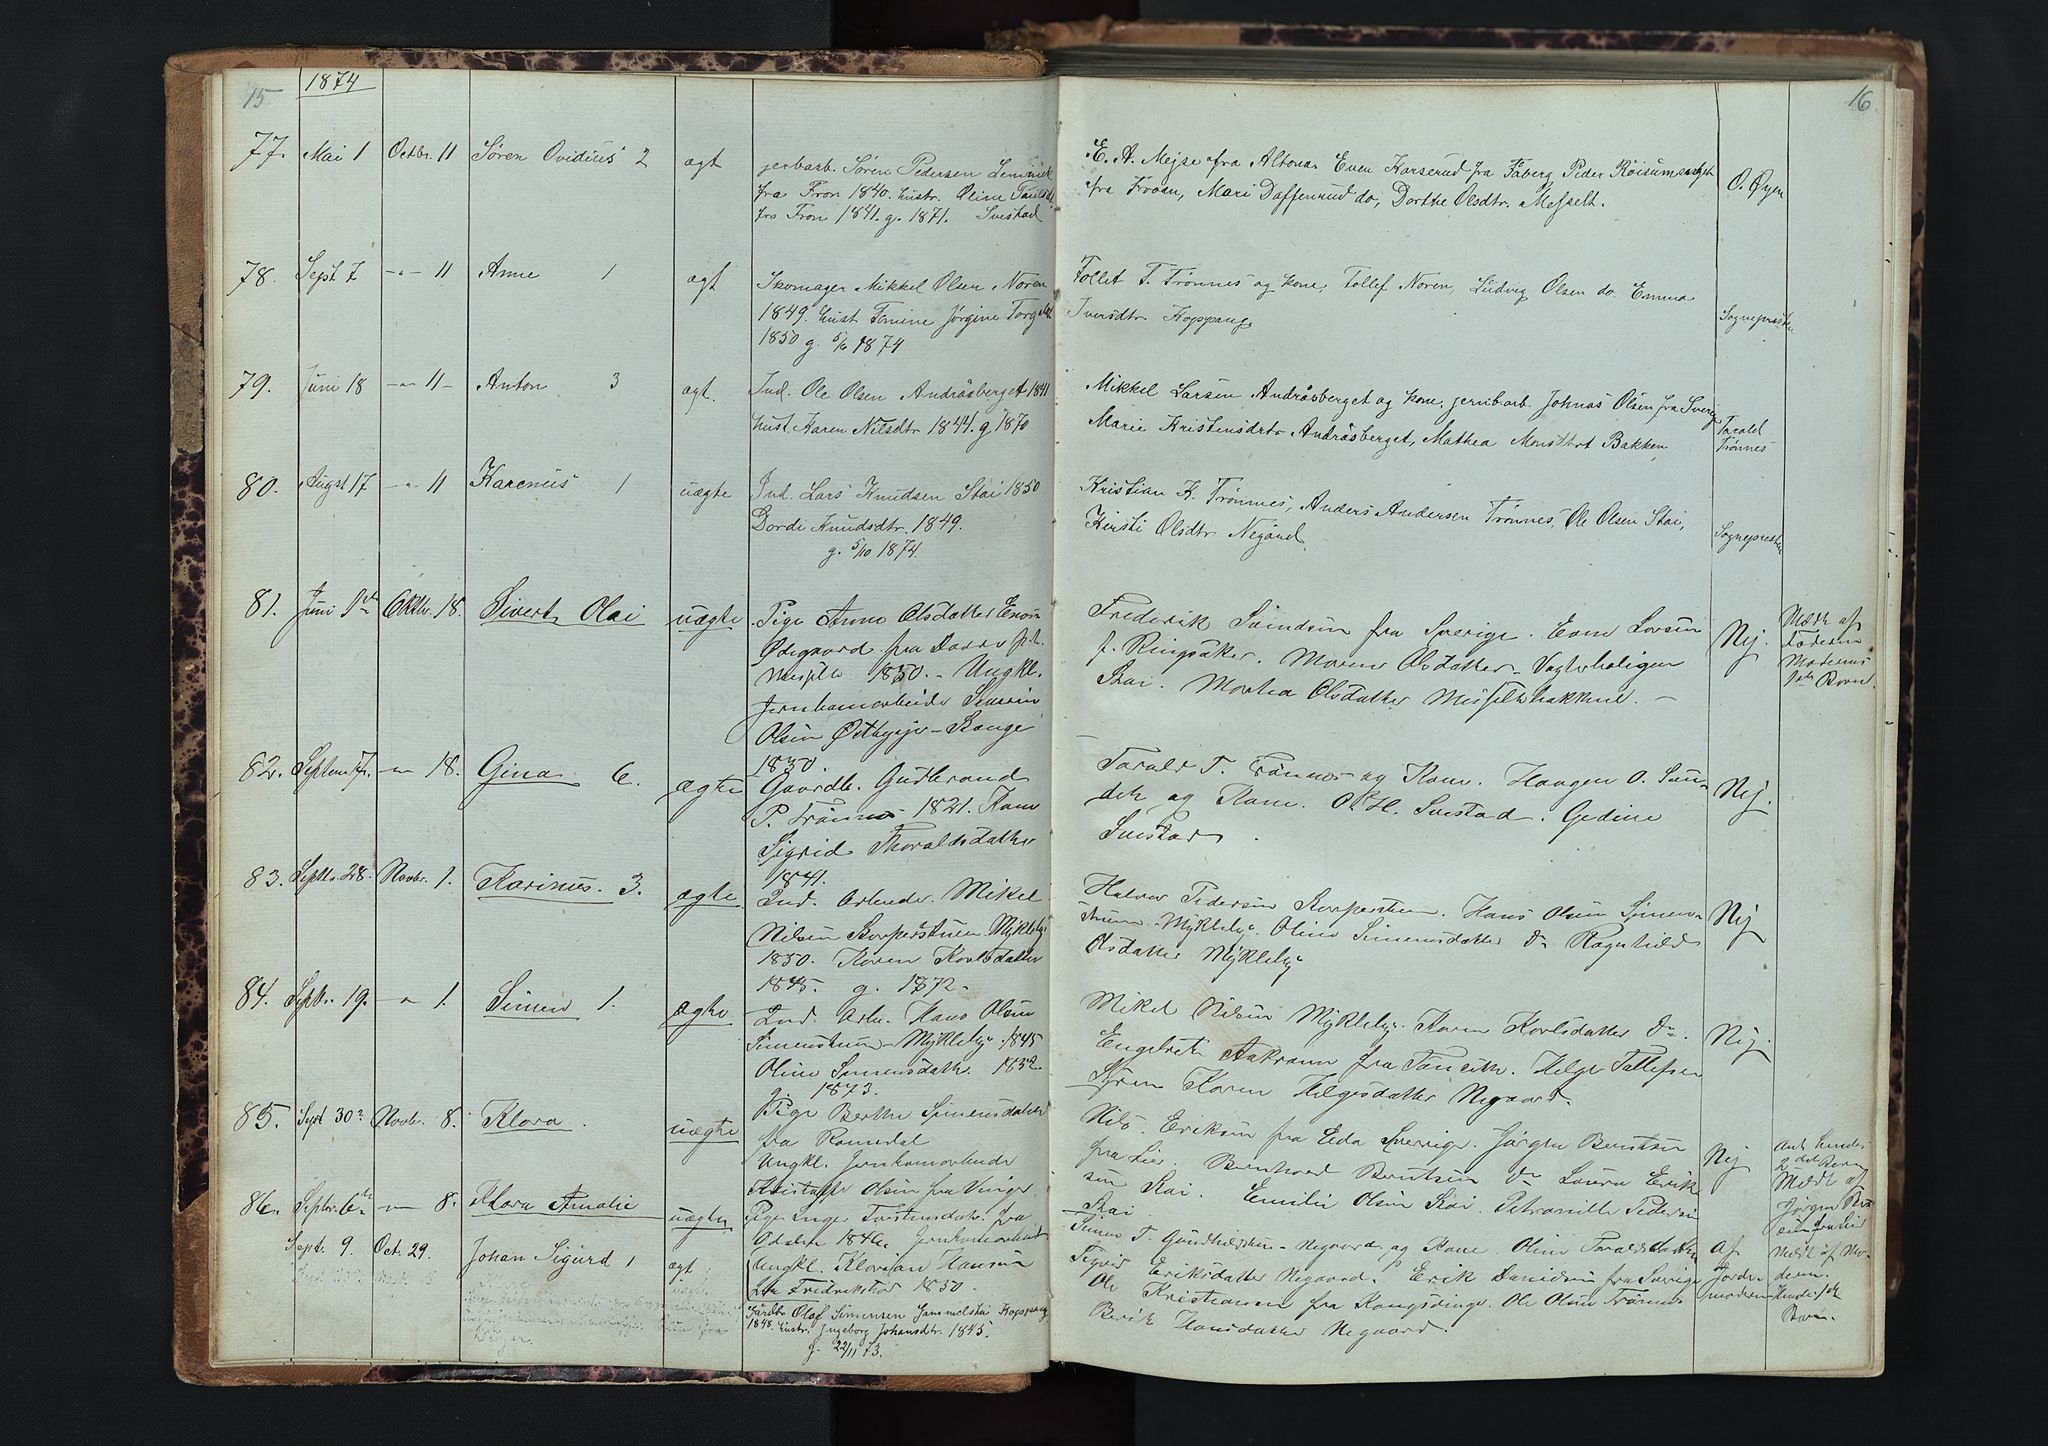 15
1874
77. Mai 1 Octbr. 11 Søren Ovidius 2 ægt
jerbarb. Søren Pedersen
fra Fron 1840. hustr. Oline
fra Fron 1841. g. 1871. Svestad
78. Sept 7 -"- 11 Anne 1 ægt
Skomager Mikkel Olsen Noren
1849. hust Jørgine
1850 g. 5/6 1874
79. Juni 18 -"- 11- Anton 3 ægt.
Ind. Ole Olsen Andråsberget 1841
hust. Karen Nilsdtr 1844. g 1870
80. August 17 -"- 11 Karenus 1 uægte
Ind. Lars Knudsen Stai 1850
Dordi Knudsdtr. 1849.
g. 5/10 1874.
81. Juni 1ste Oktbr. 18. Sivert Olai uægte
Pige Anne Olsdatter
Ødegaard fra
1850. - Ungkl.
Jernbanearbeider
Olsen Østbye - Stange
1830.
82. Septem 7. -"- 18. Gina 6. ægte
Gaardb. Gudbrand
P. Trønnes 1821. Kone
Sigrid Thoraldsdatter
1841.
83. Septbr. 28. Novbr. 1. Karinus. 3. ægte
Ind. Arbeider. Mikel
Nilsen Korperstuen Mykleby
1850. Karen Karlsdatter
1845. g. 1872.
84. Septbr. 19. -"- 1. Simen 1. ægte
Ind. Arb. Hans Olsen
Simenstuen - Mykleby 1845
Oline Simensdatter 1852.
g. 1873.
85. Sept 30te Novbr. 8. Klara. uægte
Pige Berthe Simensdatter
fra Romedal
Ungkl. Jernbanearbeide
Kristoffer Olsen fra Vinger
86. Septbr. 6te -"- 8. Klara Amalie uægte
Pige Inger Torstensdatr. fra
Odalen 1846. Jernbanearbeid
Ungkl. Hansen
fra Fredrikshal 1850.
Sept. 9. Oct. 29. Johan Sigurd 1 ægt
Gårdbr Olaf Simensen Gammelstai Koppang
1848. hustr. Ingeborg Johansdtr. 1845.
g. 22/11 73.
16
E. A. Mejse fra Altona Even Karserud fra Fåberg Peder Røisumeget
fra Froan, Mari Daffenrud do, Dorthe Olsdtr. Messelt.
O. Øyen
Tollef T. Trønnes og kone, Tollef Noren, Ludvig Olsen do. Emma
Iversdtr. Koppang.
Sognepresten
Mikkel Larsen Andråsberget og kone, jernb.arb. Johnas Olsen fra Sverige
Marie Kristensdtr Andråsberget, Mathea Bakken
Tarald
Trønnes
Kristian K. Trønnes, Anders Andersen Trønnes, Ole Olsen Stai,
Kirsti Olsdtr Negård.
Sognepresten
Frederik Svindsen fra Sverige. Even Larsen
f. Ringsaker. Maren Olsdatter
Stai. Marthea Olsdatter Misseltbakken. -
Nej.
Meldt af
Faderen
Moderens
1ste Barn.
Tarald T. Trønnes og Kone. Haagen O.
og Kone. O. H. Svestad. Gedine
Svestad.
Nej.
Halvor Pedersen Korperstuen. Hans Olsen Simen-
stuen - Mykleby. Oline Simensdatter do Ragnhild
Olsdatter Mykleby
Nej
Mikel Nilsen Mykleby. Karen Karlsdatter do.
Engebret Aakrann fra Helge Tollefsen
Karen Helgesdatter Negaard.
Nej.
Nils Eriksen fra Eda Sverrige. Jørgen Berntsen
fra Lier. Bernhard Berntsen do Laura Erik-
sen Stai. Emilie Olsen Stai. Petronille Pedersen
Stai
Nej
2det Barn
Meldt af
Jørgen
fra Lier
Simen T. Gundhildstuen - Negaard og Kone. Oline Taraldsdatter
Eriksdatter Negaard. Erik Danielsen fra Sverige
Ole Kristiansen fra Kongsvinger. Ole Olsen Trønnes
Berit Hansdatter Negaard.
af
Jorde-
moderen
Meldt af Mo-
deren.
Hendes 1ste
Barn.